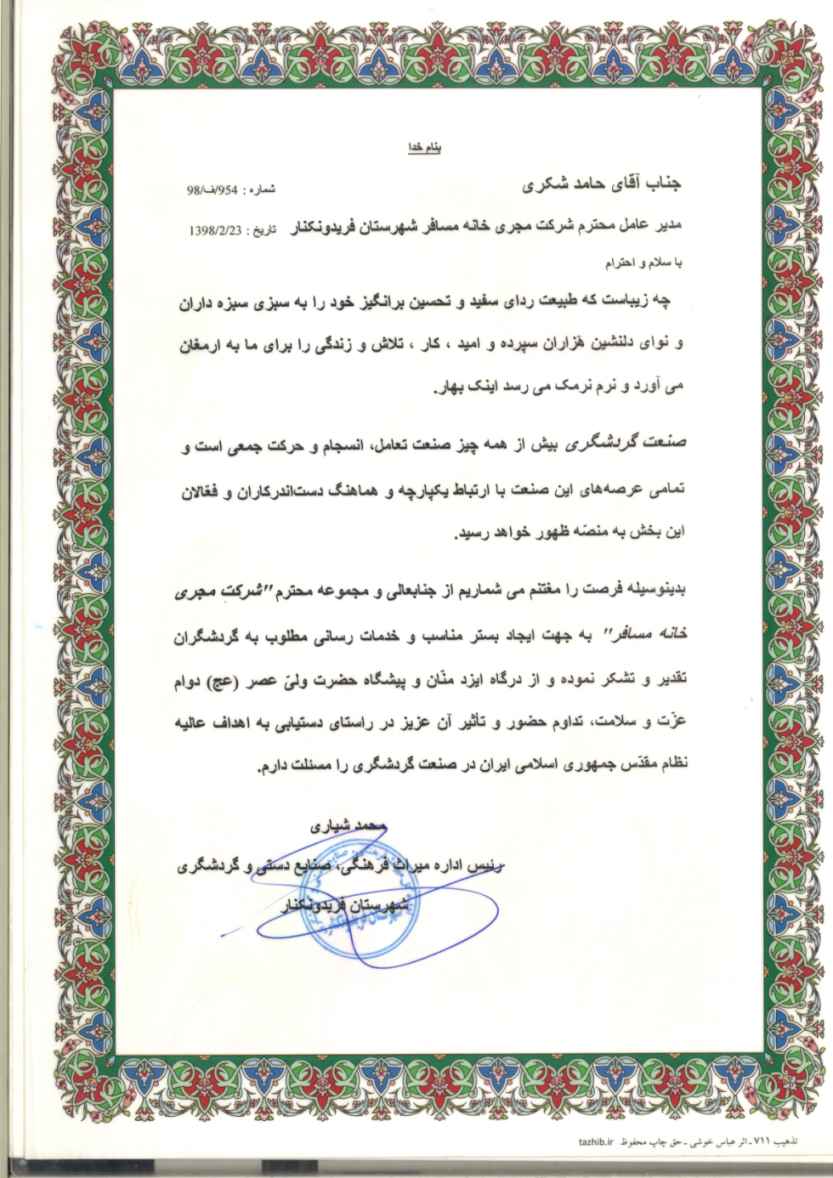 بنام خدا
جناب آقای حامد شکری
شماره : 954/ف/98
مدیر عامل محترم شرکت مجری خانه مسافر شهرستان فریدونکنار
تاریخ : 1398/2/23
با سلام و احترام
چه زیباست که طبیعت ردای سفید و تحسین برانگیز خود را به سبزی سبزه داران
و نوای دلنشین هزاران سپرده و امید ، کار ، تلاش و زندگی را برای ما به ارمغان
می آورد و نرم نرمک می رسد اینک بهار.
صنعت گردشگری بیش از همه چیز صنعت تعامل، انسجام و حرکت جمعی است و
تمامی عرصه‌های این صنعت با ارتباط یکپارچه و هماهنگ دست‌اندرکاران و فعّالان
این بخش به منصّه ظهور خواهد رسید.
بدینوسیله فرصت را مغتنم می شماریم از جنابعالی و مجموعه محترم "شرکت مجری
خانه مسافر" به جهت ایجاد بستر مناسب و خدمات رسانی مطلوب به گردشگران
تقدیر و تشکر نموده و از درگاه ایزد منّان و پیشگاه حضرت ولیّ عصر (عج) دوام
عزّت و سلامت، تداوم حضور و تأثیر آن عزیز در راستای دستیابی به اهداف عالیه
نظام مقدّس جمهوری اسلامی ایران در صنعت گردشگری را مسئلت دارم.
محمد شیاری
رئیس اداره میراث فرهنگی، صنایع دستی و گردشگری
شهرستان فریدونکنار
تذهیب ۷۱۱ ـ اثر عباس خوشی ـ حق چاپ محفوظ tazhib.ir